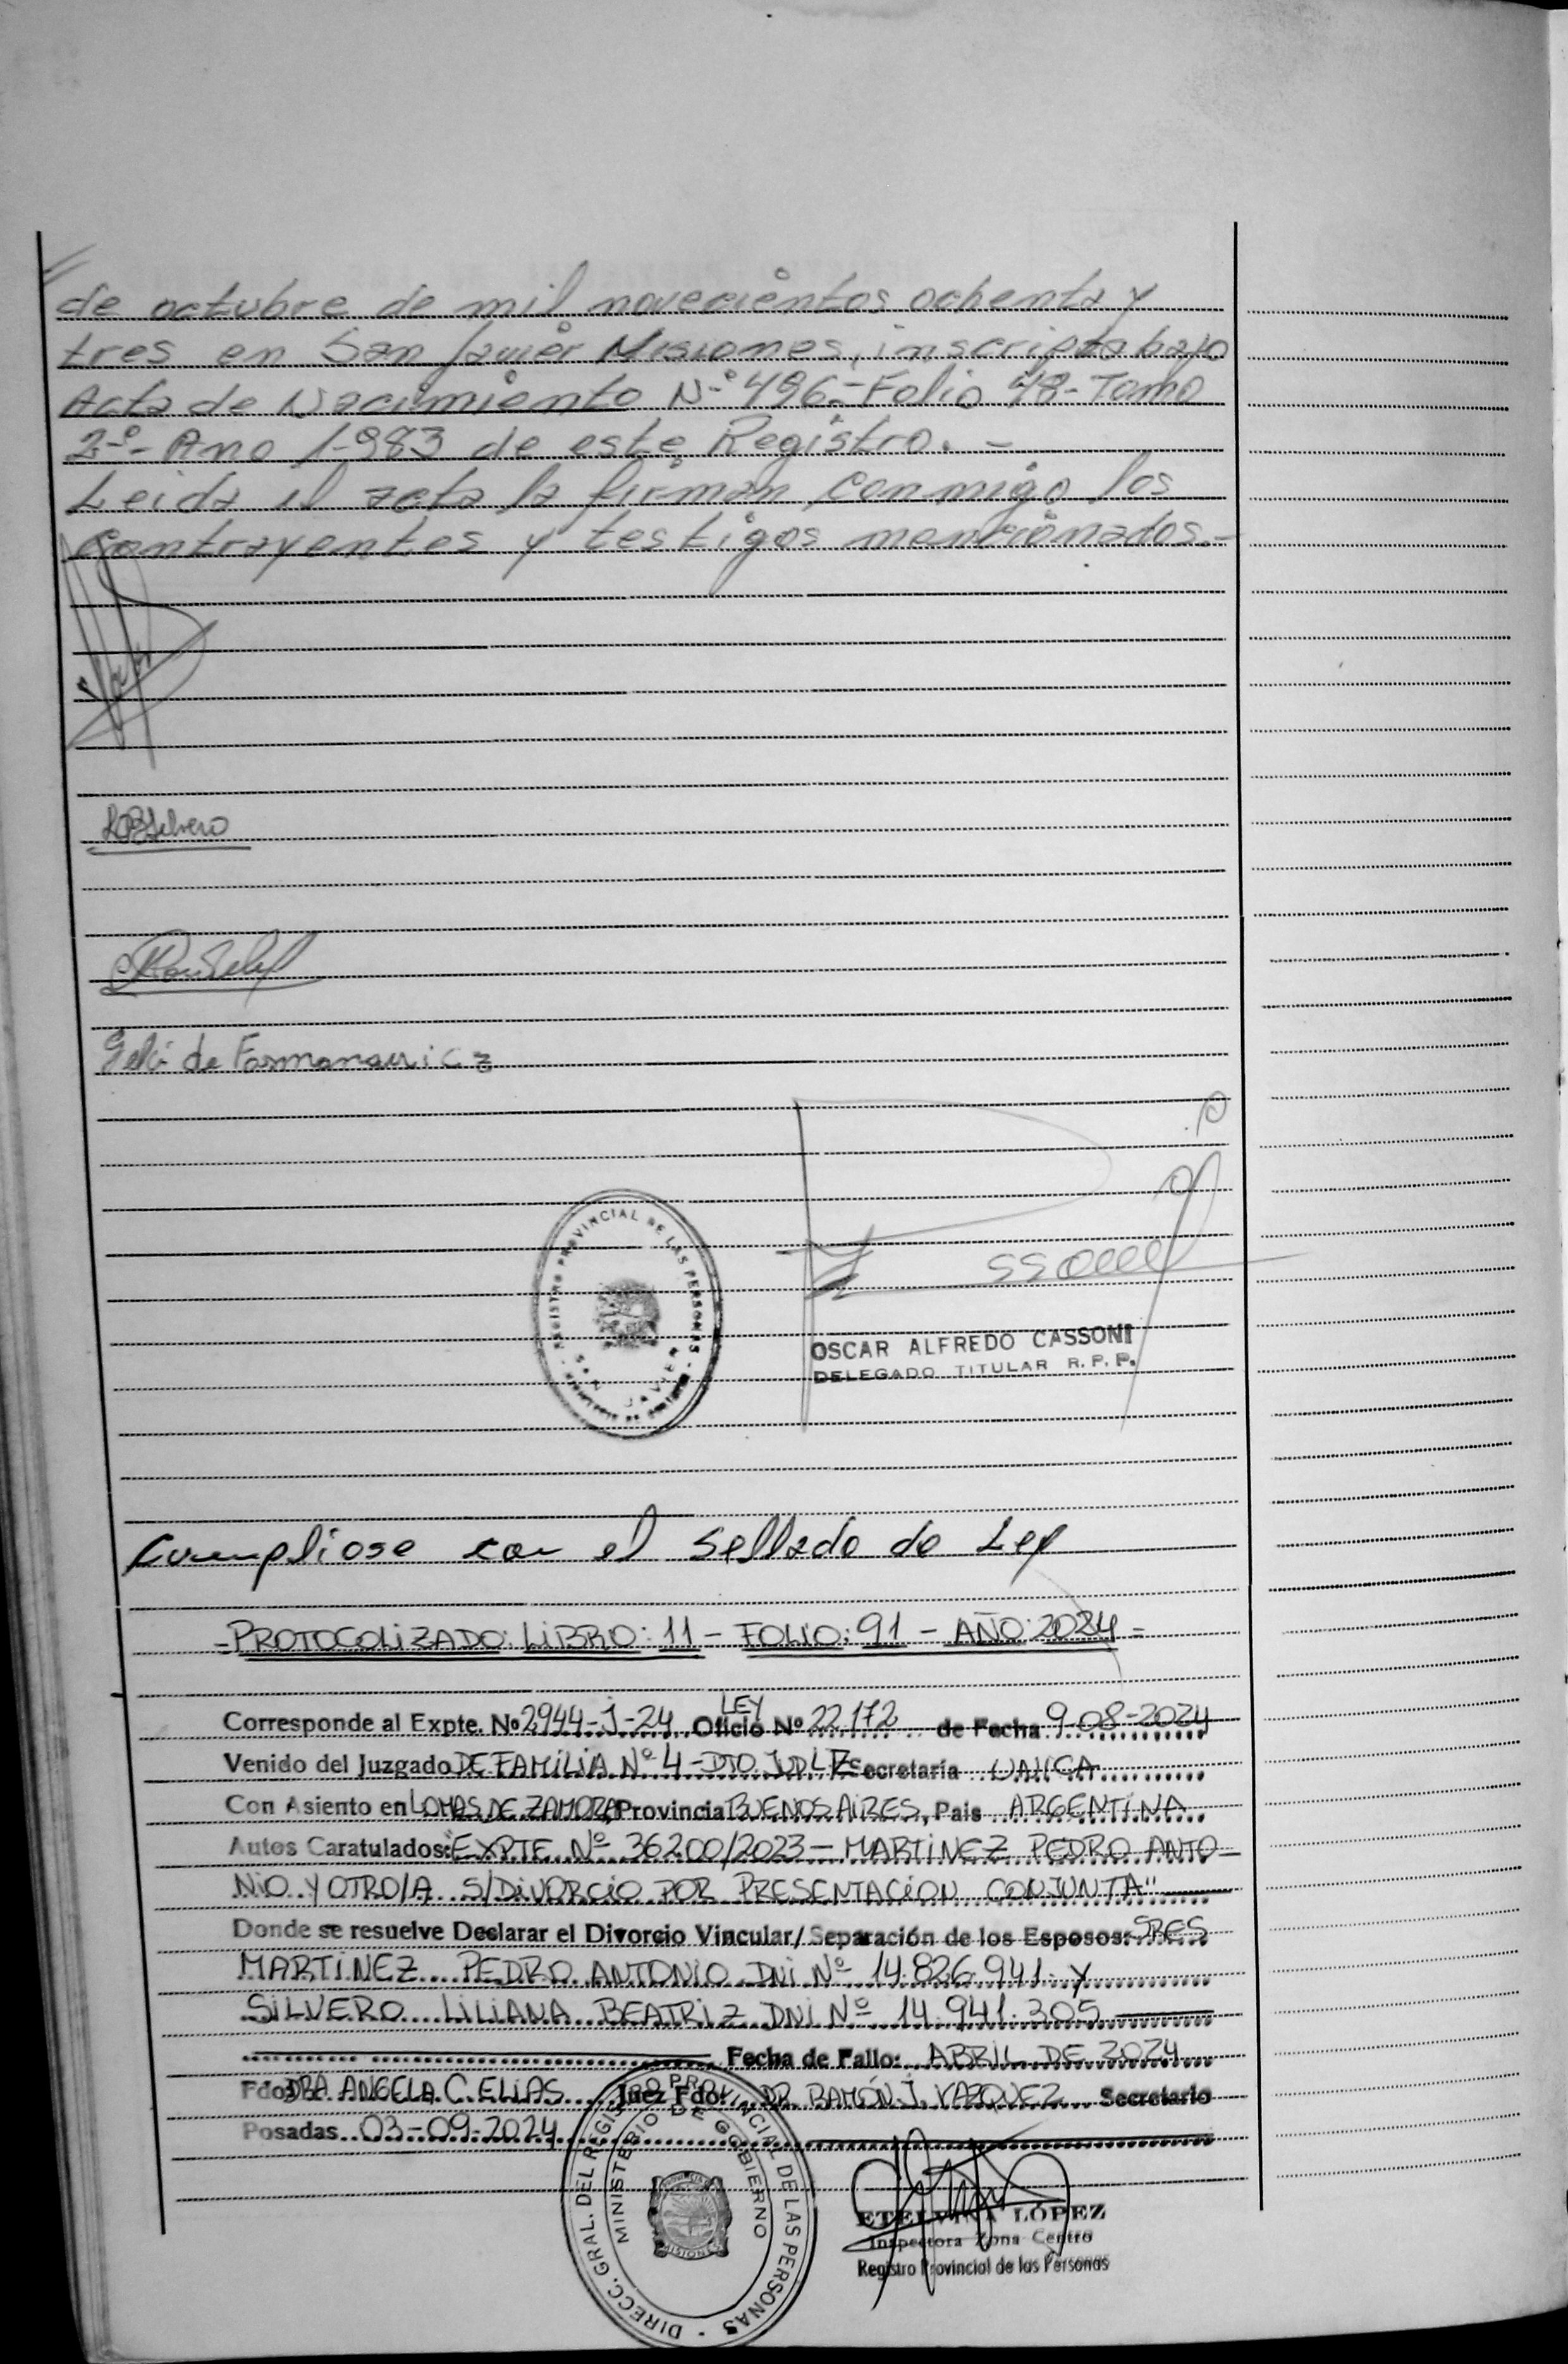 de octubre de mil novecientos ochenta y
tres en San Javier Misiones, inscripta bajo
Acta de Nacimiento Nº 496.- Folio 48- Tomo
2º- Ano 1.983 de este Registro.-
Leida el acta la firman conmigo los
contrayentes y testigos mencionados.-
LBSilvero
de Formanawicz
REGISTRO PROVINCIAL DE LAS PERSONAS
OSCAR ALFREDO CASSONI
DELEGADO TITULAR R. P. P.
Cumpliose con el Sellado de Ley
- PROTOCOLIZADO: LIBRO: 11 - FOLIO: 91 - AÑO: 2024 -
Corresponde al Expte. Nº 2944-J-24 Oficio LEY Nº 22.172 de Fecha 9-08-2024
Venido del Juzgado DE FAMILIA Nº 4 - DTO. JUD LZ Secretaría UNICA
Con Asiento en LOMAS DE ZAMORA, Provincia BUENOS AIRES, Pais ARGENTINA
Autos Caratulados: EXPTE Nº 36200/2023 - MARTINEZ PEDRO ANTO-
NIO Y OTRO/A S/DIVORCIO POR PRESENTACION CONJUNTA"
Donde se resuelve Declarar el Divorcio Vincular/Separación de los Esposos: SRES
MARTINEZ PEDRO ANTONIO DNI Nº 14.826.941 Y
SILVERO LILIANA BEATRIZ DNI Nº 14.941.305
Fecha de Fallo: ABRIL DE 2024
Fdo: DRA ANGELA C. ELIAS Juez Fdo: DR. RAMÓN J. VAZQUEZ Secretario
Posadas 03-09-2024
DIRECC. GRAL. DEL REGISTRO PROVINCIAL DE LAS PERSONAS
MINISTERIO DE GOBIERNO
MISIONES
ETELVINA LÓPEZ
Inspectora Zona Centro
Registro Provincial de las Personas